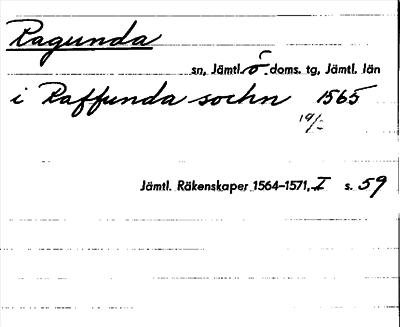 Ragunda
sn, Jämtl. ö. doms. tg, Jämtl. län
i Raffunda sochn 1565
19/
Jämtl. Räkenskaper 1564-1571, I s. 59